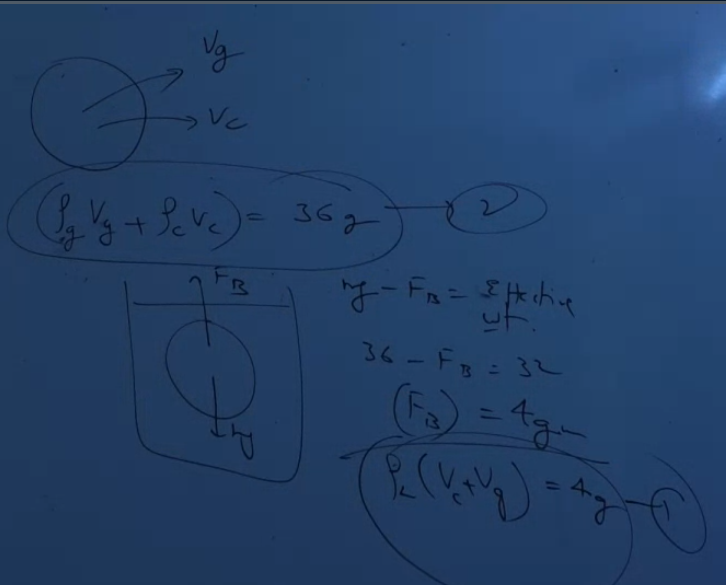 Vg
Vc
(ρg Vg + ρc Vc) = 36g
2
FB
mg
mg - FB = Effective
wt.
36 - FB = 32
(FB) = 4gm
ρL (Vc + Vg) = 4g
1